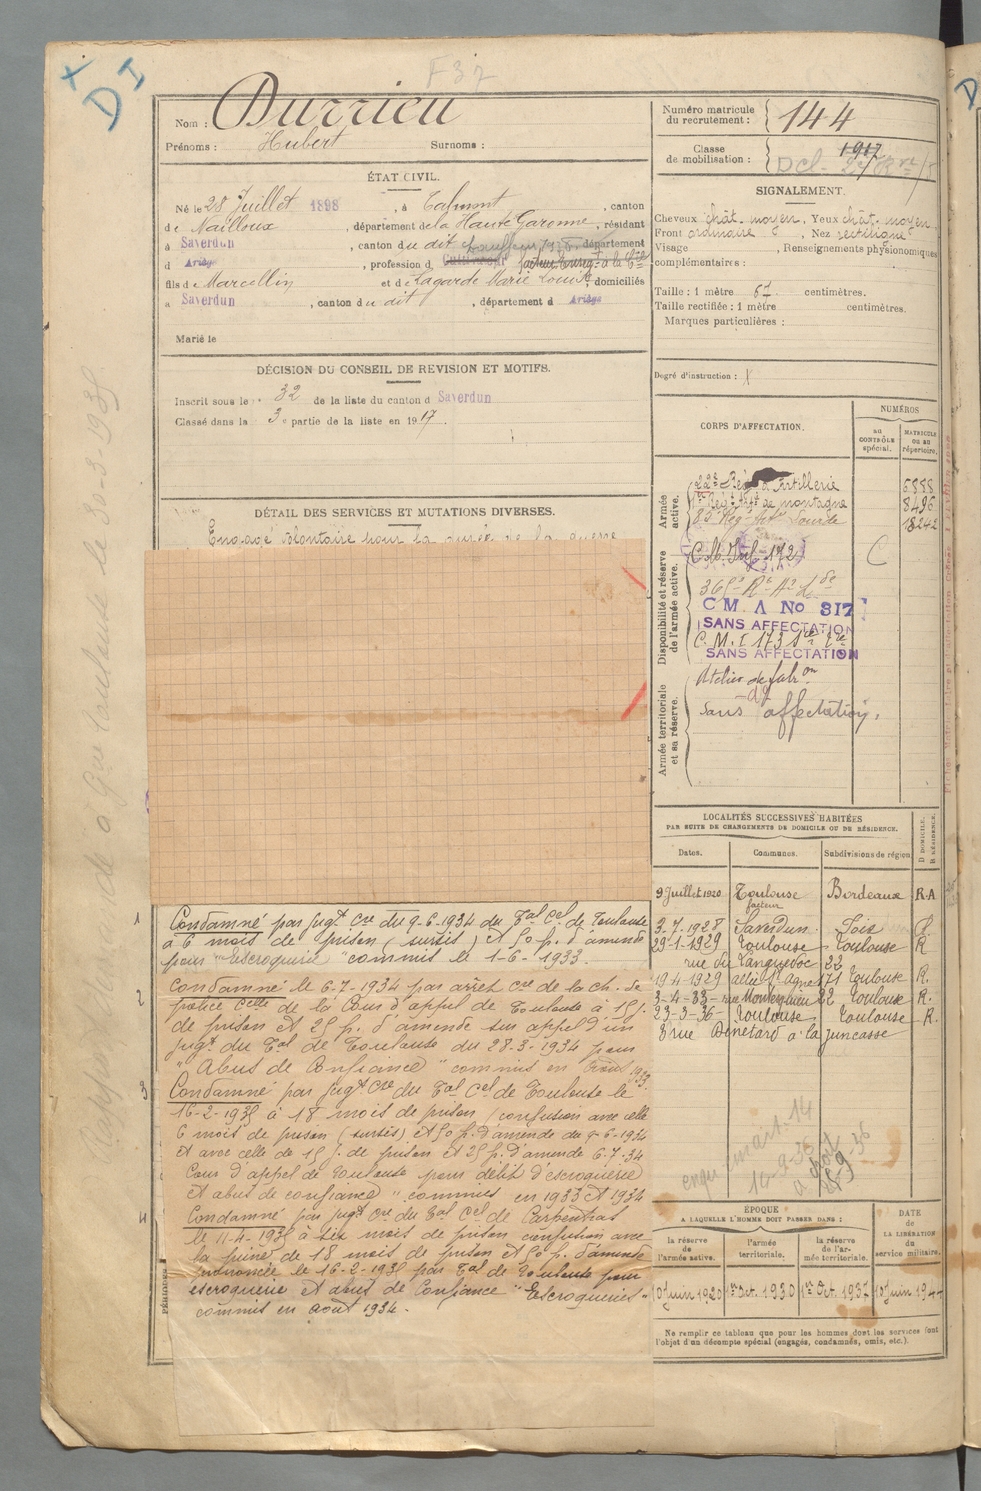 F37
D I
Nom : Durrieu
Prénoms : Hubert Surnoms :
Numéro matricule du recrutement : 144
Classe de mobilisation : 1917
ÉTAT CIVIL.
Né le 28 Juillet 1898, à Calmont, canton
de Nailloux, département de la Haute Garonne, résidant
à Saverdun, canton du dit, département
d Ariège, profession d Cultivateur
fils de Marcellin et de Lagarde Marie Louise, domiciliés
à Saverdun, canton du dit, département d Ariège
Marié le
DÉCISION DU CONSEIL DE REVISION ET MOTIFS.
Inscrit sous le n° 32 de la liste du canton d Saverdun
Classé dans la 3e partie de la liste en 1917.
DÉTAIL DES SERVICES ET MUTATIONS DIVERSES.
Engagé volontaire pour la durée de la guerre
1 Condamné par jugt cre du 9-6-1934 du Tal Cel de Toulouse
à 6 mois de prison (sursis) et 50 f. d'amende
pour "Escroquerie" commis le 1-6-1933.
2 Condamné le 6-7-1934 par arrêt cre de la ch. de
police Celle de la Cour d'appel de Toulouse à 15 j.
de prison et 25 f. d'amende sur appel d'un
jugt du Tal de Toulouse du 28-3-1934 pour
"Abus de Confiance" commis en 1933
3 Condamné par jugt cre du Tal Cel de Toulouse le
16-2-1935 à 18 mois de prison (confusion avec celle
6 mois de prison (sursis) et 50 f. d'amende du 9-6-1934
et avec celle de 15 j. de prison et 25 f. d'amende 6-7-34
Cour d'appel de Toulouse pour délit d'escroquerie
et abus de confiance" commis en 1933 et 1934
4 Condamné par jugt cre du Tal Cel de Carpentras
le 11-4-1935 à six mois de prison confusion avec
la peine de 18 mois de prison et 50 f. d'amende
prononcée le 16-2-1935 par Tal de Toulouse pour
escroquerie et abus de Confiance "Escroqueries"
commis en août 1934.
PÉRIODES
SIGNALEMENT.
Cheveux chât-moyen, Yeux chât-moyen
Front ordinaire, Nez rectiligne
Visage , Renseignements physionomiques
complémentaires :
Taille : 1 mètre 67 centimètres.
Taille rectifiée : 1 mètre centimètres.
Marques particulières :
Degré d'instruction :
CORPS D'AFFECTATION.
NUMÉROS
au CONTRÔLE spécial.
MATRICULE ou au répertoire.
Armée active.
22e Régt d'Artillerie 5888
1er Régt Art de montagne 8496
83e Rég. Artie Lourde 18242
Disponibilité et réserve de l'armée active.
C.M. Inf. 172 C
C M A No 317
SANS AFFECTATION
C. M. I 173
SANS AFFECTATION
Armée territoriale et sa réserve.
Atelier de fabron
Sans affectation,
LOCALITÉS SUCCESSIVES HABITÉES
PAR SUITE DE CHANGEMENTS DE DOMICILE OU DE RÉSIDENCE.
Dates. Communes. Subdivisions de région D DOMICILE. R RÉSIDENCE.
9 Juillet 1920 Toulouse Bordeaux R.A
facteur
3-7-1928 Saverdun Foix D
29-1-1929 Toulouse Toulouse R
rue du Languedoc 22
19-4-1929 allée St Agne 171 Toulouse R.
3-4-33 22 Toulouse R.
23-3-36 Toulouse Toulouse R.
ÉPOQUE
A LAQUELLE L'HOMME DOIT PASSER DANS :
la réserve de l'armée active. l'armée territoriale. la réserve de l'armée territoriale.
DATE de LA LIBÉRATION du service militaire.
10 Juin 1920 1er Oct. 1930 1er Oct. 1937 10 Juin 194
Ne remplir ce tableau que pour les hommes dont les services font
l'objet d'un décompte spécial (engagés, condamnés, omis, etc.).